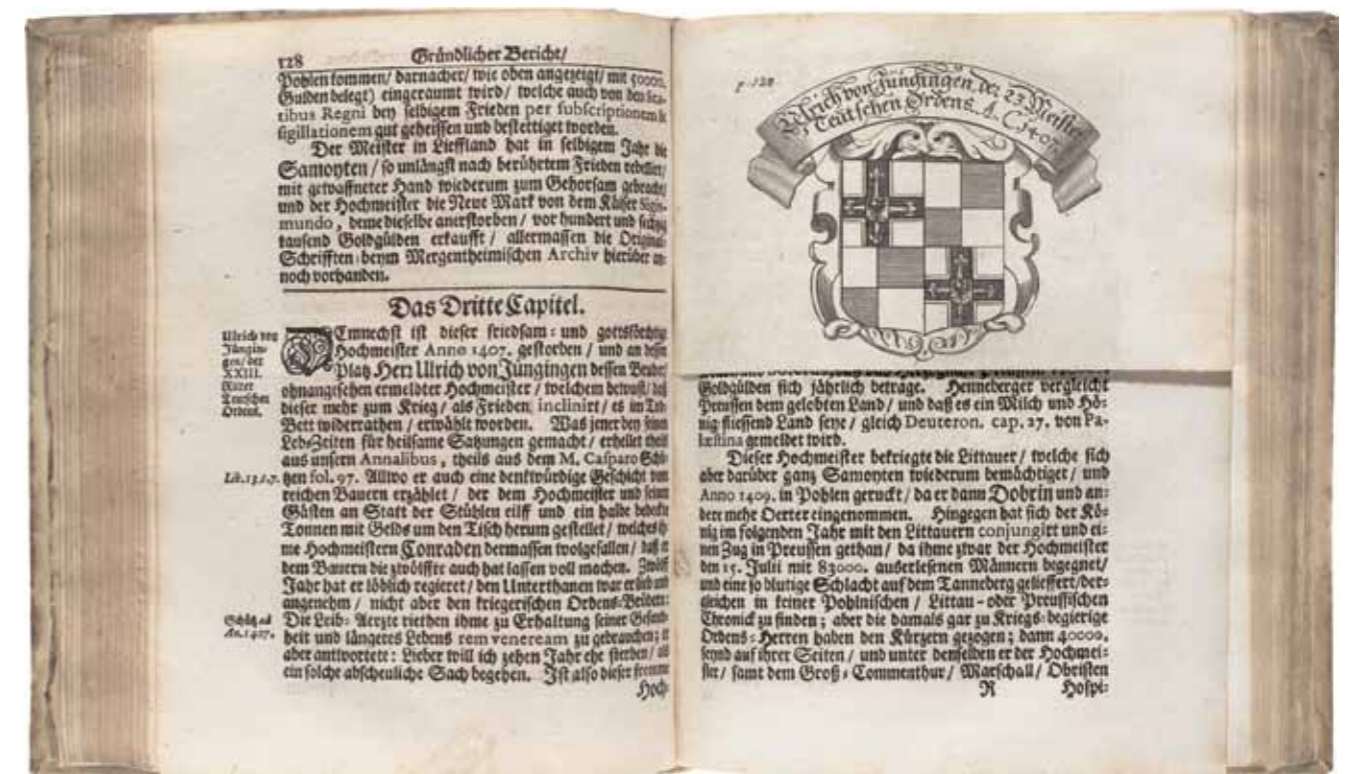 128 Gründlicher Bericht/
Pohlen kommen/ darnacher/ wie oben angezeigt/ mit 50000.
Gulden belegt) eingeraumt wird/ welche auch von den Sta-
tibus Regni bey selbigem Frieden per subscriptionem &
sigillationem gut geheissen und bestettiget worden.
Der Meister in Lieffland hat in selbigem Jahr die
Samoyten/ so unlängst nach berührtem Frieden rebellirt/
mit gewaffneter Hand wiederum zum Gehorsam gebracht/
und der Hochmeister die Neue Mark von dem Käiser Sigis-
mundo, deme dieselbe anerstorben/ vor hundert und sechzig
tausend Goldgülden erkaufft/ allermassen die Original-
Schrifften beym Mergentheimischen Archiv hierüber an-
noch vorhanden.
Das Dritte Capitel.
Ulrich von
Jüngin-
gen/ der
XXIII.
Ritter
Teutschen
Ordens.
DEmnechst ist dieser friedsam- und gottsförchtig
Hochmeister Anno 1407. gestorben/ und an dessen
Platz Herr Ulrich von Jüngingen dessen Bruder/
ohnangesehen ermeldter Hochmeister/ welchem bewust/ daß
dieser mehr zum Krieg/ als Frieden inclinirt/ es im Tod-
Bett widerrathen/ erwählt worden. Was jener bey seinen
Leb-Zeiten für heilsame Satzungen gemacht/ erhellet theils
aus unsern Annalibus, theils aus dem M. Casparo Schü-
Lib.13.c.7. tzen fol. 97. Allwo er auch eine denkwürdige Geschicht von
reichen Bauern erzählet/ der dem Hochmeister und seinen
Gästen an Statt der Stühlen eilff und ein halbe bedeckte
Tonnen mit Gelds um den Tisch herum gestellet/ welches ih-
me Hochmeistern Conraden dermassen wolgefallen/ daß er
dem Bauern die zwölffte auch hat lassen voll machen. Zwölff
Jahr hat er löblich regieret/ den Unterthanen war er lieb und
angenehm/ nicht aber den kriegerischen Ordens-Brüdern:
Schütz ad
An. 1407.
Die Leib-Aerzte riethen ihme zu Erhaltung seiner Gesund-
heit und längeres Lebens rem veneream zu gebrauchen; er
aber antwortete: Lieber will ich zehen Jahr ehe sterben/ als
ein solche abscheuliche Sach begehen. Ist also dieser fromme
Hoch-
p. 128
Ulrich von Jüngingen, der 23. Meister
Teutschen Ordens. A. C. 1407.
Goldgülden sich jährlich betrage. Henneberger vergleicht
Preussen dem gelobten Land/ und daß es ein Milch und Hö-
nig fliessend Land seye/ gleich Deuteron. cap. 27. von Pa-
læstina gemeldet wird.
Dieser Hochmeister bekriegte die Littauer/ welche sich
aber darüber ganz Samoyten wiederum bemächtiget/ und
Anno 1409. in Pohlen geruckt/ da er dann Dobrin und an-
dere mehr Oerter eingenommen. Hingegen hat sich der Kö-
nig im folgenden Jahr mit den Littauern conjungirt und ei-
nen Zug in Preussen gethan/ da ihme zwar der Hochmeister
den 15. Julii mit 83000. außerlesenen Männern begegnet/
und eine so blutige Schlacht auf dem Tanneberg gelieffert/ der-
gleichen in keiner Pohlnischen/ Littau- oder Preussischen
Chronick zu finden; aber die damals gar zu Kriegs-begierige
Ordens-Herren haben den Kürzern gezogen; dann 40000.
seynd auf ihrer Seiten/ und unter denselben er der Hochmei-
ster/ samt dem Groß-Commenthur/ Marschall/ Obristen
R Hospi-